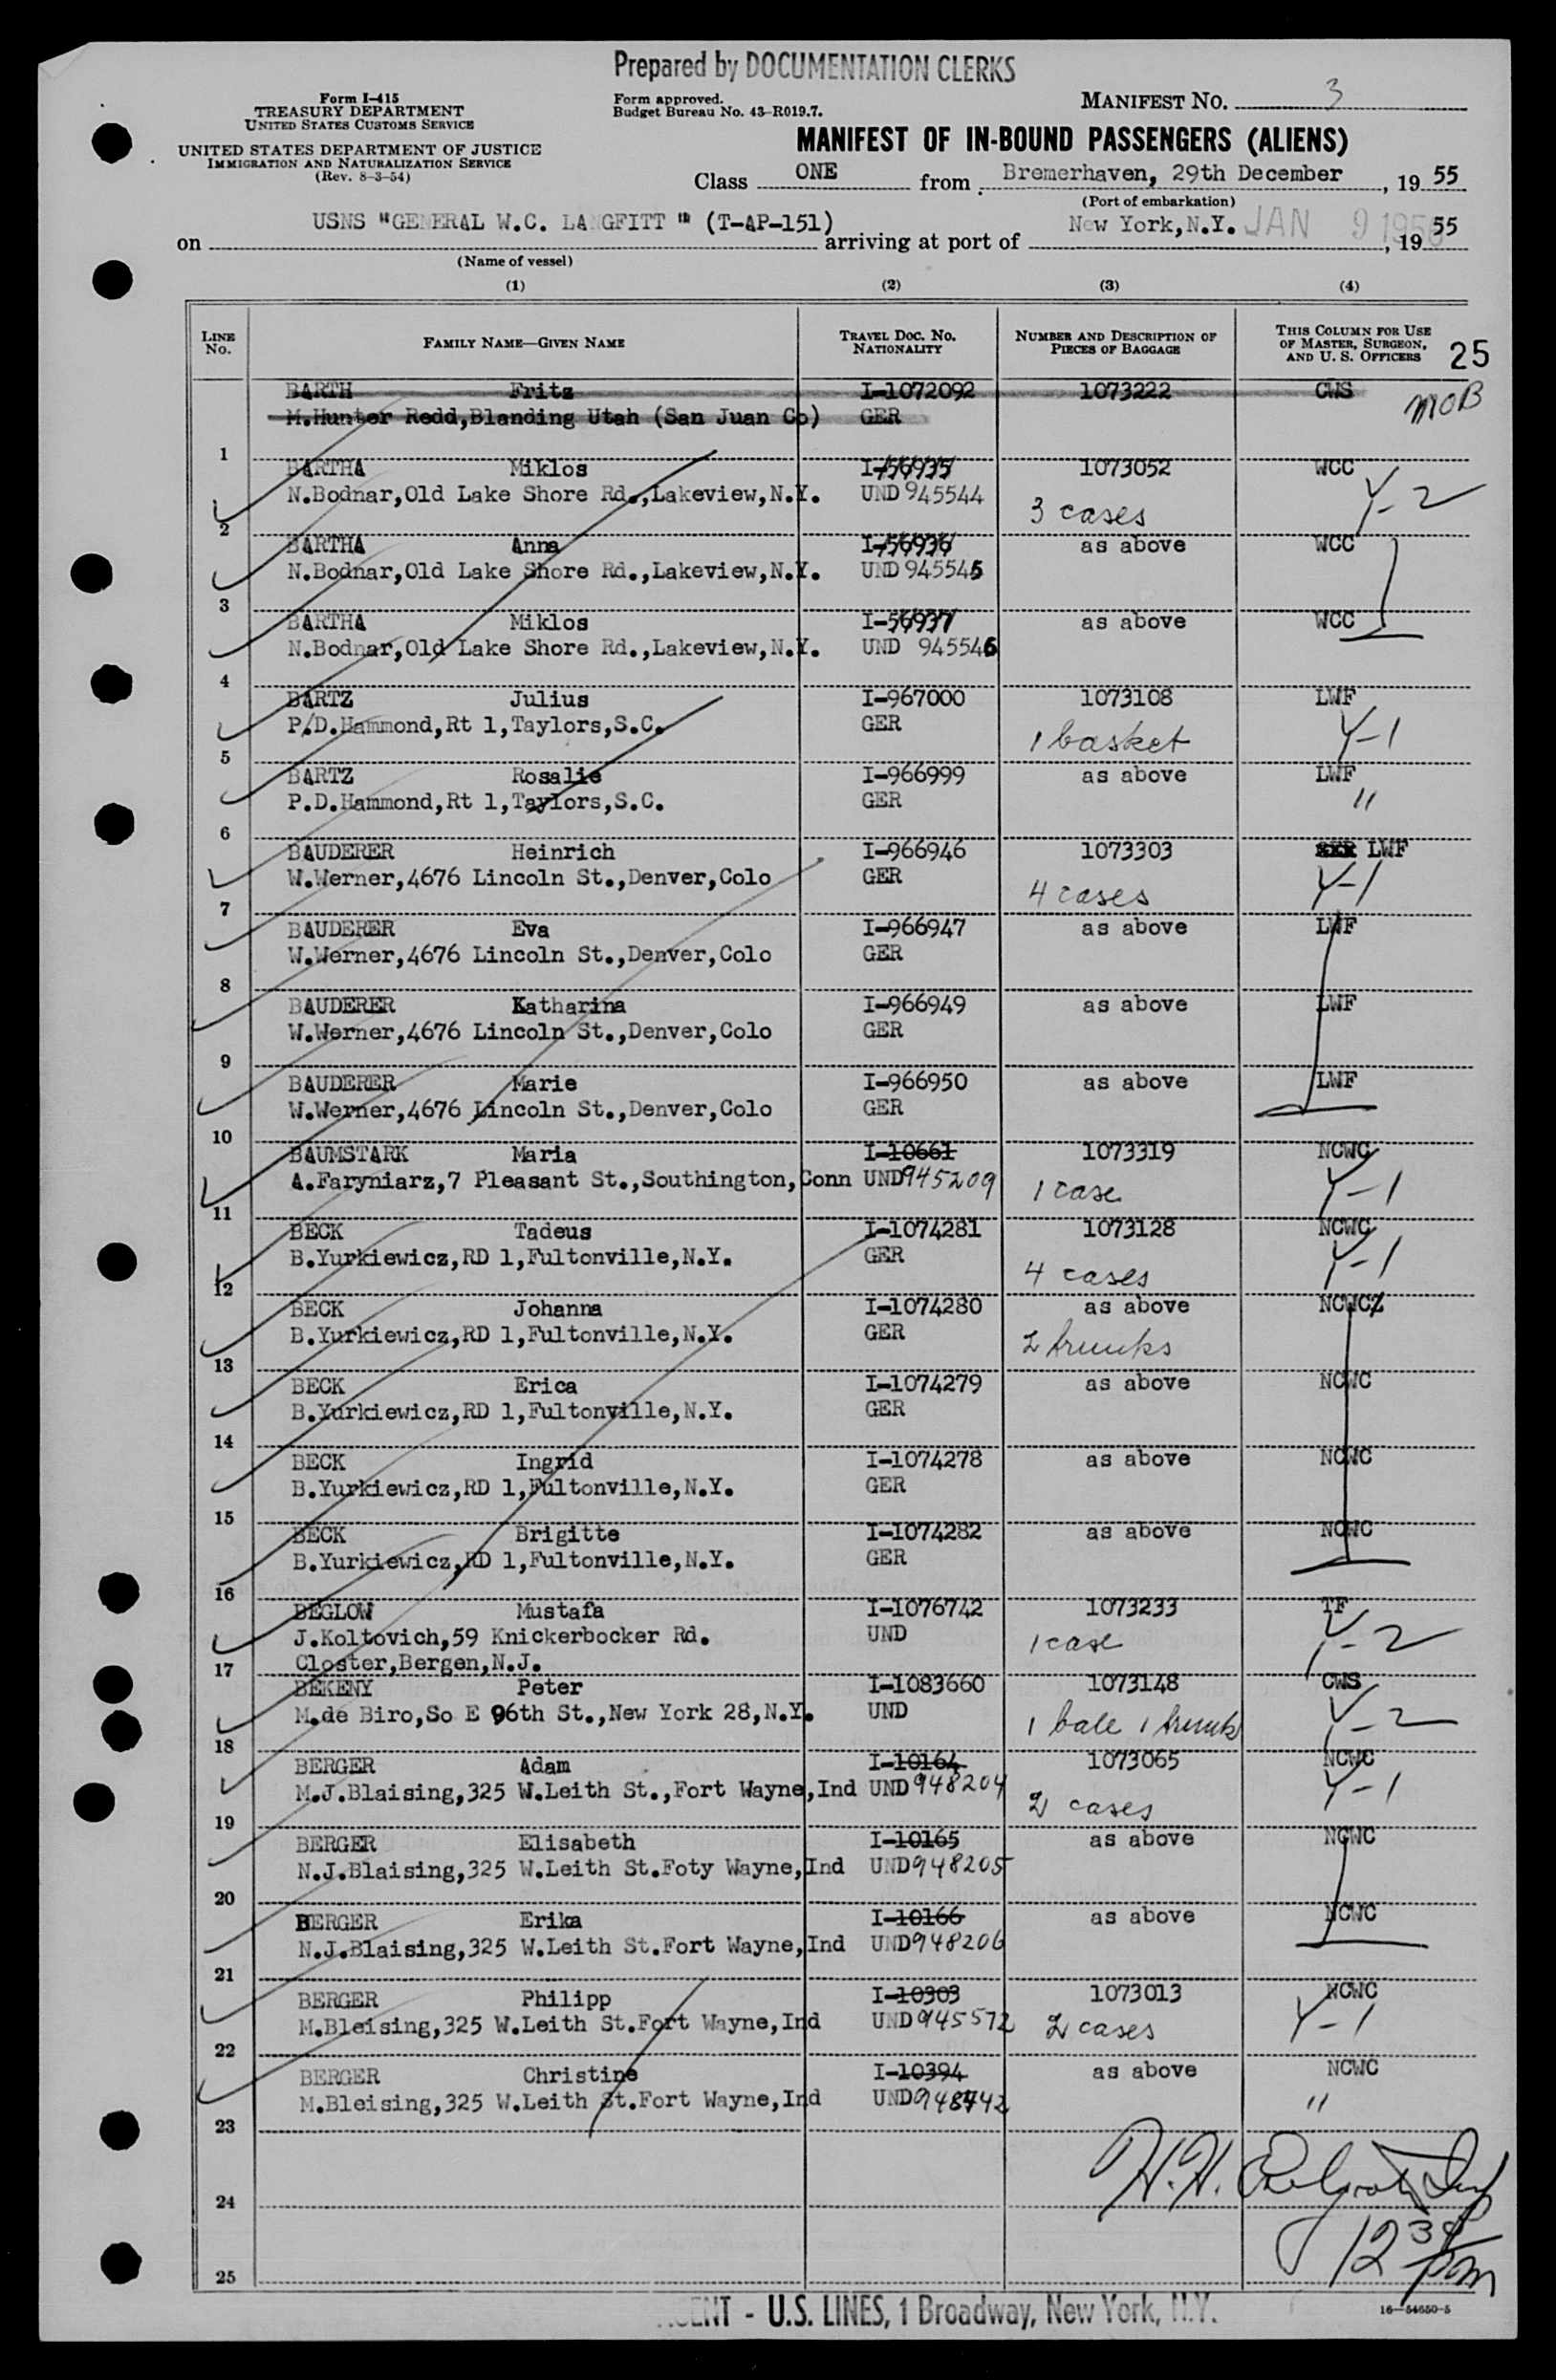 Prepared by DOCUMENTATION CLERKS
Form I-415
TREASURY DEPARTMENT
UNITED STATES CUSTOMS SERVICE
UNITED STATES DEPARTMENT OF JUSTICE
IMMIGRATION AND NATURALIZATION SERVICE
(Rev. 8-3-54)
Form approved.
Budget Bureau No. 43-R019.7.
MANIFEST NO. 3
MANIFEST OF IN-BOUND PASSENGERS (ALIENS)
Class ONE from Bremerhaven, 29th December, 19 55
(Port of embarkation)
on USNS "GENERAL W.C. LANGFITT " (T-AP-151) arriving at port of New York,N.Y. JAN 9 1956, 19 55
(Name of vessel)
(1) (2) (3) (4)
LINE NO. FAMILY NAME—GIVEN NAME TRAVEL DOC. NO. NATIONALITY NUMBER AND DESCRIPTION OF PIECES OF BAGGAGE THIS COLUMN FOR USE OF MASTER, SURGEON, AND U. S. OFFICERS 25
BARTH Fritz I-1072092 1073222 CWS
M.Hunter Redd,Blanding Utah (San Juan Co) GER MOB
1
BARTHA Miklos I-56935 1073052 WCC
N.Bodnar,Old Lake Shore Rd.,Lakeview,N.Y. UND 945544 3 cases Y-2
2
BARTHA Anna I-56936 as above WCC
N.Bodnar,Old Lake Shore Rd.,Lakeview,N.Y. UND 945545
3
BARTHA Miklos I-56937 as above WCC
N.Bodnar,Old Lake Shore Rd.,Lakeview,N.Y. UND 945546
4
BARTZ Julius I-967000 1073108 LWF
P.D.Hammond,Rt 1,Taylors,S.C. GER 1 basket Y-1
5
BARTZ Rosalie I-966999 as above LWF
P.D.Hammond,Rt 1,Taylors,S.C. GER "
6
BAUDERER Heinrich I-966946 1073303 LWF
W.Werner,4676 Lincoln St.,Denver,Colo GER 4 cases Y-1
7
BAUDERER Eva I-966947 as above LWF
W.Werner,4676 Lincoln St.,Denver,Colo GER
8
BAUDERER Katharina I-966949 as above LWF
W.Werner,4676 Lincoln St.,Denver,Colo GER
9
BAUDERER Marie I-966950 as above LWF
W.Werner,4676 Lincoln St.,Denver,Colo GER
10
BAUMSTARK Maria I-10661 1073319 NCWC
A.Faryniarz,7 Pleasant St.,Southington,Conn UND 945209 1 case Y-1
11
BECK Tadeus I-1074281 1073128 NCWC
B.Yurkiewicz,RD 1,Fultonville,N.Y. GER 4 cases Y-1
12
BECK Johanna I-1074280 as above NCWC
B.Yurkiewicz,RD 1,Fultonville,N.Y. GER 2 trunks
13
BECK Erica I-1074279 as above NCWC
B.Yurkiewicz,RD 1,Fultonville,N.Y. GER
14
BECK Ingrid I-1074278 as above NCWC
B.Yurkiewicz,RD 1,Fultonville,N.Y. GER
15
BECK Brigitte I-1074282 as above NCWC
B.Yurkiewicz,RD 1,Fultonville,N.Y. GER
16
BEGLOW Mustafa I-1076742 1073233 TF
J.Koltovich,59 Knickerbocker Rd. UND 1 case Y-2
Closter,Bergen,N.J.
17
BEKENY Peter I-1083660 1073148 CWS
M.de Biro,So E 96th St.,New York 28,N.Y. UND 1 bale 1 trunk Y-2
18
BERGER Adam I-10164 1073065 NCWC
M.J.Blaising,325 W.Leith St.,Fort Wayne,Ind UND 948204 2 cases Y-1
19
BERGER Elisabeth I-10165 as above NCWC
N.J.Blaising,325 W.Leith St.Foty Wayne,Ind UND 948205
20
BERGER Erika I-10166 as above NCWC
N.J.Blaising,325 W.Leith St.Fort Wayne,Ind UND 948206
21
BERGER Philipp I-10303 1073013 NCWC
M.Bleising,325 W.Leith St.Fort Wayne,Ind UND 945572 2 cases Y-1
22
BERGER Christine I-10394 as above NCWC
M.Bleising,325 W.Leith St.Fort Wayne,Ind UND 948442 "
23
H.H.
24
12 30 pm
25
- U.S. LINES, 1 Broadway, New York, N.Y.
16—54650-5